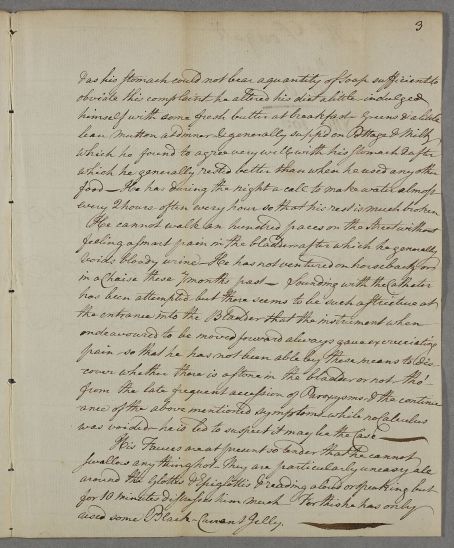 3
& as his stomach could not bear a quantity of Soap sufficient to
obviate this complaint he altered his diet a little indulged
himself with some fresh butter at breakfast – Greens & a little
lean Mutton at dinner & generally supp'd on Pottage & Milk
which he found to agree very well with his stomach & after
which he generally rested better than when he used any other
food – He has during the night a call to make water almost
every 2 hours often every hour so that his rest is much broken
He cannot walk an hundred paces on the street without
feeling a smart pain in the bladder after which he generally
voids bloody urine – He has not ventured on horseback or
in a Chaise these 7 months past – Sounding with the Catheter
has been attempted but there seems to be such a stricture at
the entrance into the Bladder that the instrument when
endeavoured to be moved forward always gave excruciating
pain so that he has not been able by these means to dis-
cover whether there is a stone in the bladder or not tho'
from the late frequent accession of Paroxysms, & the continu
ance of the above mentioned symptoms while no Calculus
was voided – he is led to suspect it may be the Case
His Fauces are at present so tender that he cannot
swallow any thing hot – They are particularly uneasy all
around the Glottis & Epiglottis & reading aloud or speaking but
for 10 minutes distresses him much – For this he has only
used some Black-Currant Jelly.